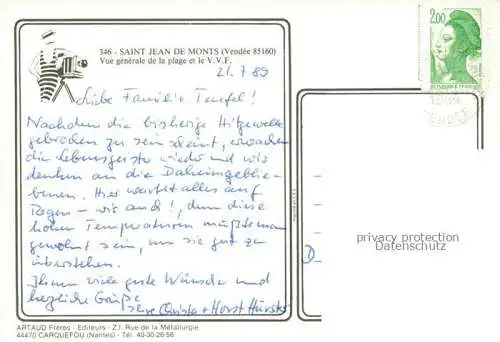 346 - SAINT JEAN DE MONTS (Vendée 85160)
Vue générale de la plage et le V.V.F.
21.7.89
Liebe Familie Teufel!
Nachdem die bisherige Hitzewelle
gebrochen zu sein scheint, erwachen
die Lebensgeister wieder und wir
denken an die Daheimgeblie-
benen. Hier wartet alles auf
Regen - wir auch!, denn diese
hohen Temperaturen müßte man
gewohnt sein, um sie gut zu
überstehen.
Ihnen viele gute Wünsche und
herzliche Grüße
Ihre Christa + Horst
ARTAUD Frères - Editeurs - Z.I. Rue de la Métallurgie
44470 CARQUEFOU (Nantes) - Tél. 40-30-26-56
2,00
VENDEE
D
privacy protection
Datenschutz